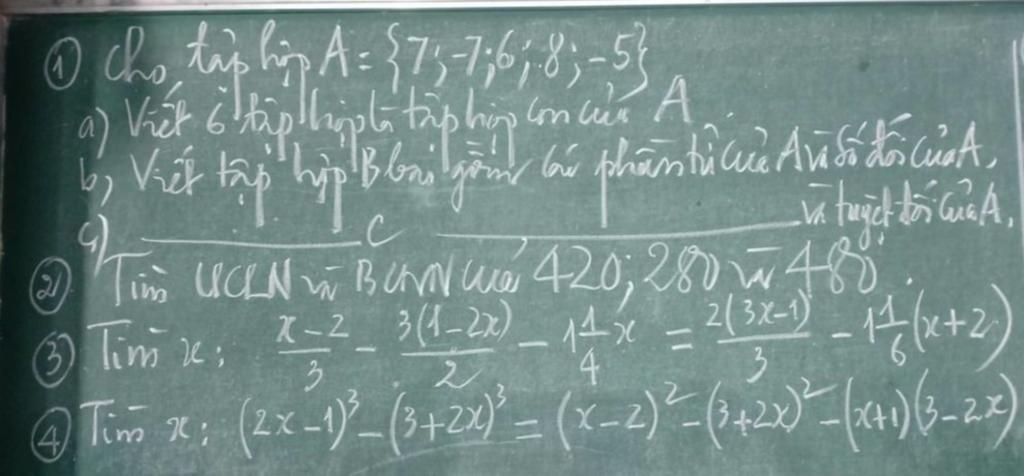 ① Cho tập hợp A = {7; -7; 6; 8; -5}
a) Viết 6 tập hợp là tập hợp con của A.
b) Viết tập hợp B bao gồm các phần tử của A và số đối của A.
c) ———— C ———— và tuyệt đối của A.
② Tìm ƯCLN và BCNN của 420; 280 và 480.
③ Tìm x: (x-2)/3 - 3(1-2x)/2 - 1 1/4 x = 2(3x-1)/3 - 1 1/6 (x+2)
④ Tìm x: (2x-1)³ - (3+2x)³ = (x-2)² - (3+2x)² - (x+1)(3-2x)